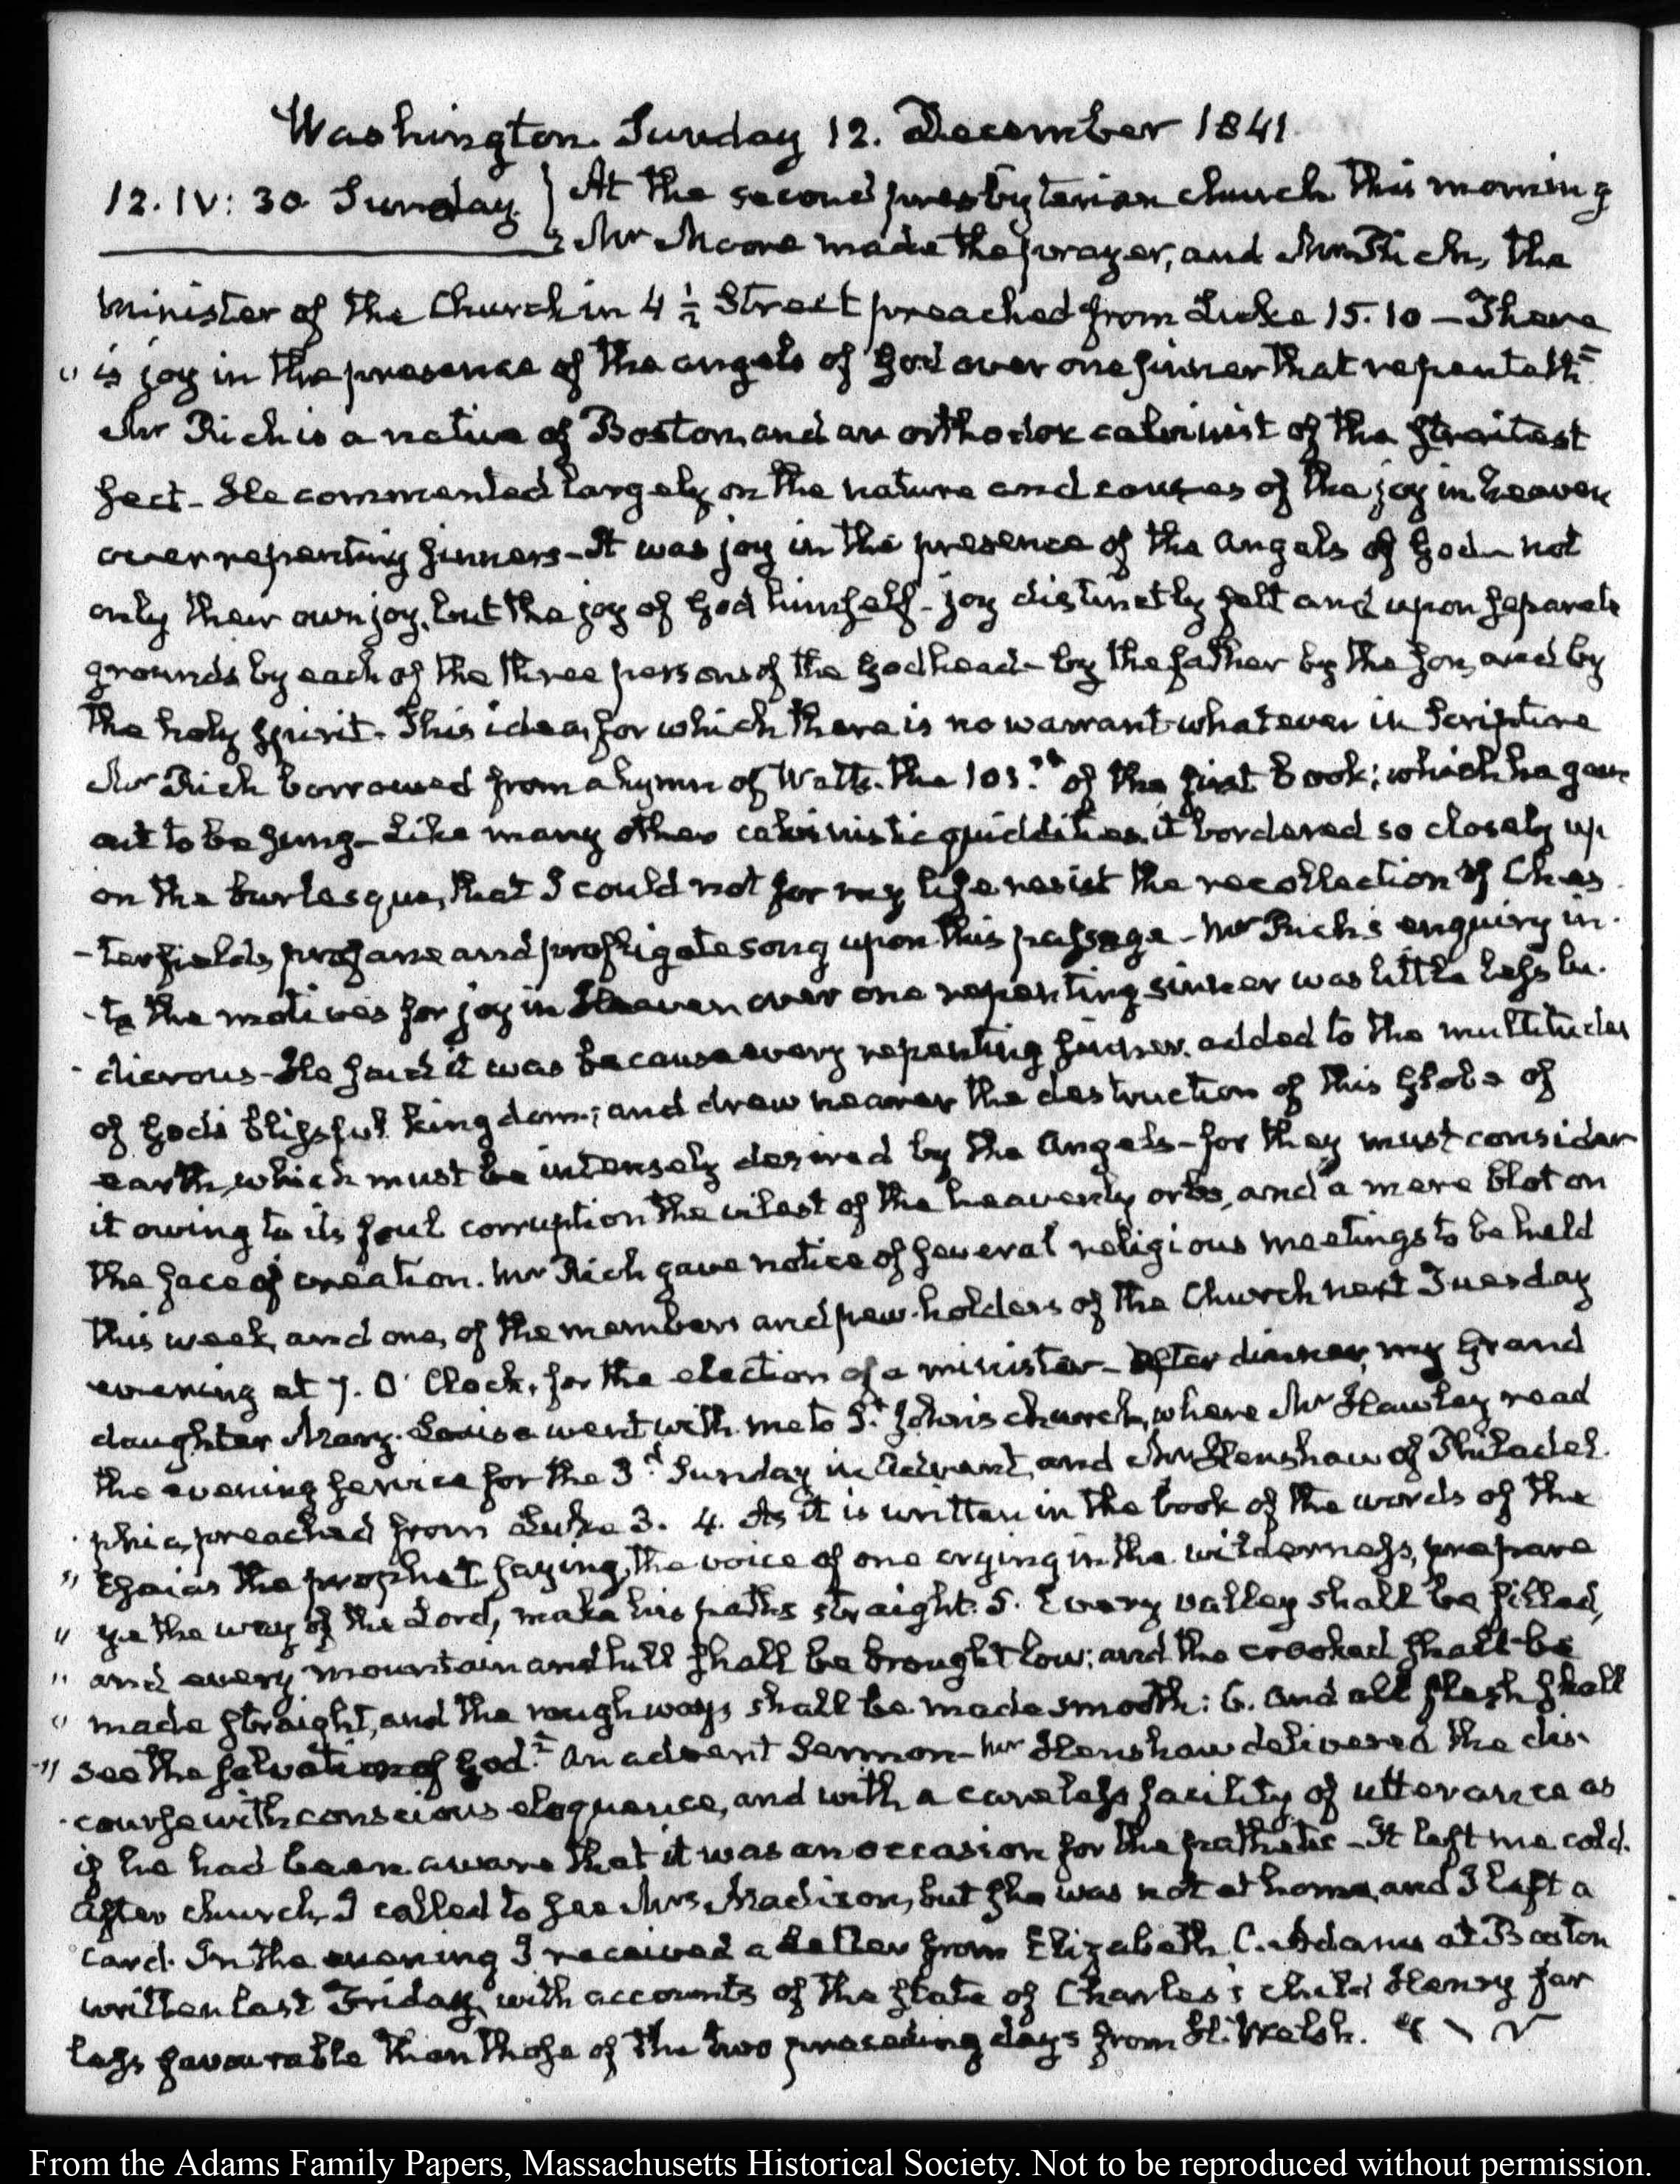 Washington. Sunday 12. December 1841
12. IV: 30. Sunday. } At the second presbyterian church this morning
Mr Moore made the prayer, and Mr Rich, the
minister of the Church in 4 ½ Street preached from Luke 15. 10 — There
" is joy in the presence of the angels of God over one sinner that repenteth"
Mr Rich is a native of Boston, and an orthodox calvinist of the straitest
sect. He commented largely on the nature and causes of the joy in heaven
over repenting sinners — It was joy in the presence of the Angels of God — not
only their own joy, but the joy of God himself — joy distinctly felt and upon separate
grounds by each of the three persons of the Godhead — by the father by the son, and by
the holy spirit. This idea, for which there is no warrant whatever in Scripture
Mr Rich borrowed from a hymn of Watts. the 101.st of the first book; which he gave
out to be sung — Like many other calvinistic quiddities, it bordered so closely up
on the burlesque, that I could not for my life resist the recollection of Ches
-terfield's profane and profligate song upon this passage — Mr Rich's enquiry in
-to the motives for joy in Heaven over one repenting sinner was little less lu-
-dicrous — He said it was because every repenting sinner, added to the multitudes
of God's blissful kingdom; and drew nearer the destruction of this Globe of
earth, which must be intensely desired by the Angels — for they must consider
it owing to its foul corruption the vilest of the heavenly orbs, and a mere blot on
the face of creation. Mr Rich gave notice of several religious meetings to be held
this week, and one, of the members and pew-holders of the Church next Tuesday
evening at 7. O' Clock, for the election of a minister — After dinner, my Grand
daughter Mary-Louisa went with me to St. John's church, where Mr Hawley read
the evening service for the 3d Sunday in Advent, and Mr Henshaw of Philadel-
-phia, preached from Luke 3. 4. As it is written in the book of the words of the
" Esaias the prophet, saying, the voice of one crying in the wilderness, prepare
" ye the way of the Lord, make his paths straight. 5. Every valley shall be filled,
" and every mountain and hill shall be brought low; and the crooked shall be
" made straight, and the rough ways shall be made smooth: 6. And all flesh shall
" see the salvation of God." An advent Sermon — Mr Henshaw delivered the dis-
-course with conscious eloquence, and with a careless facility of utterance as
if he had been aware that it was an occasion for the pathetic — It left me cold.
After church, I called to see Mrs Madison, but she was not at home, and I left a
card. In the evening I received a Letter from Elizabeth C. Adams at Boston
written last Friday, with accounts of the state of Charles's child Henry far
less favourable than those of the two preceding days from H. Welsh.
From the Adams Family Papers, Massachusetts Historical Society. Not to be reproduced without permission.